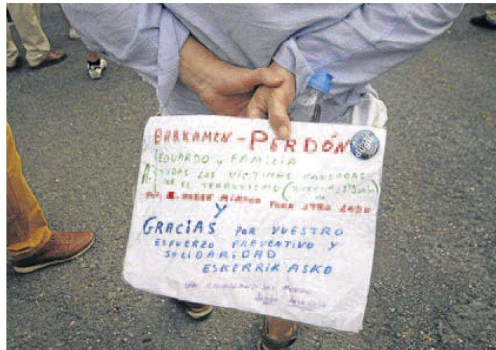 BARKAMEN - PERDÓN
EDUARDO y FAMILIA
A TODAS LAS VÍCTIMAS CAUSADAS
POR EL TERRORISMO
POR HABER MIRADO PARA OTRO LADO
Y
GRACIAS POR VUESTRO
ESFUERZO PREVENTIVO Y
SOLIDARIDAD
ESKERRIK ASKO
UN CIUDADANO DEL